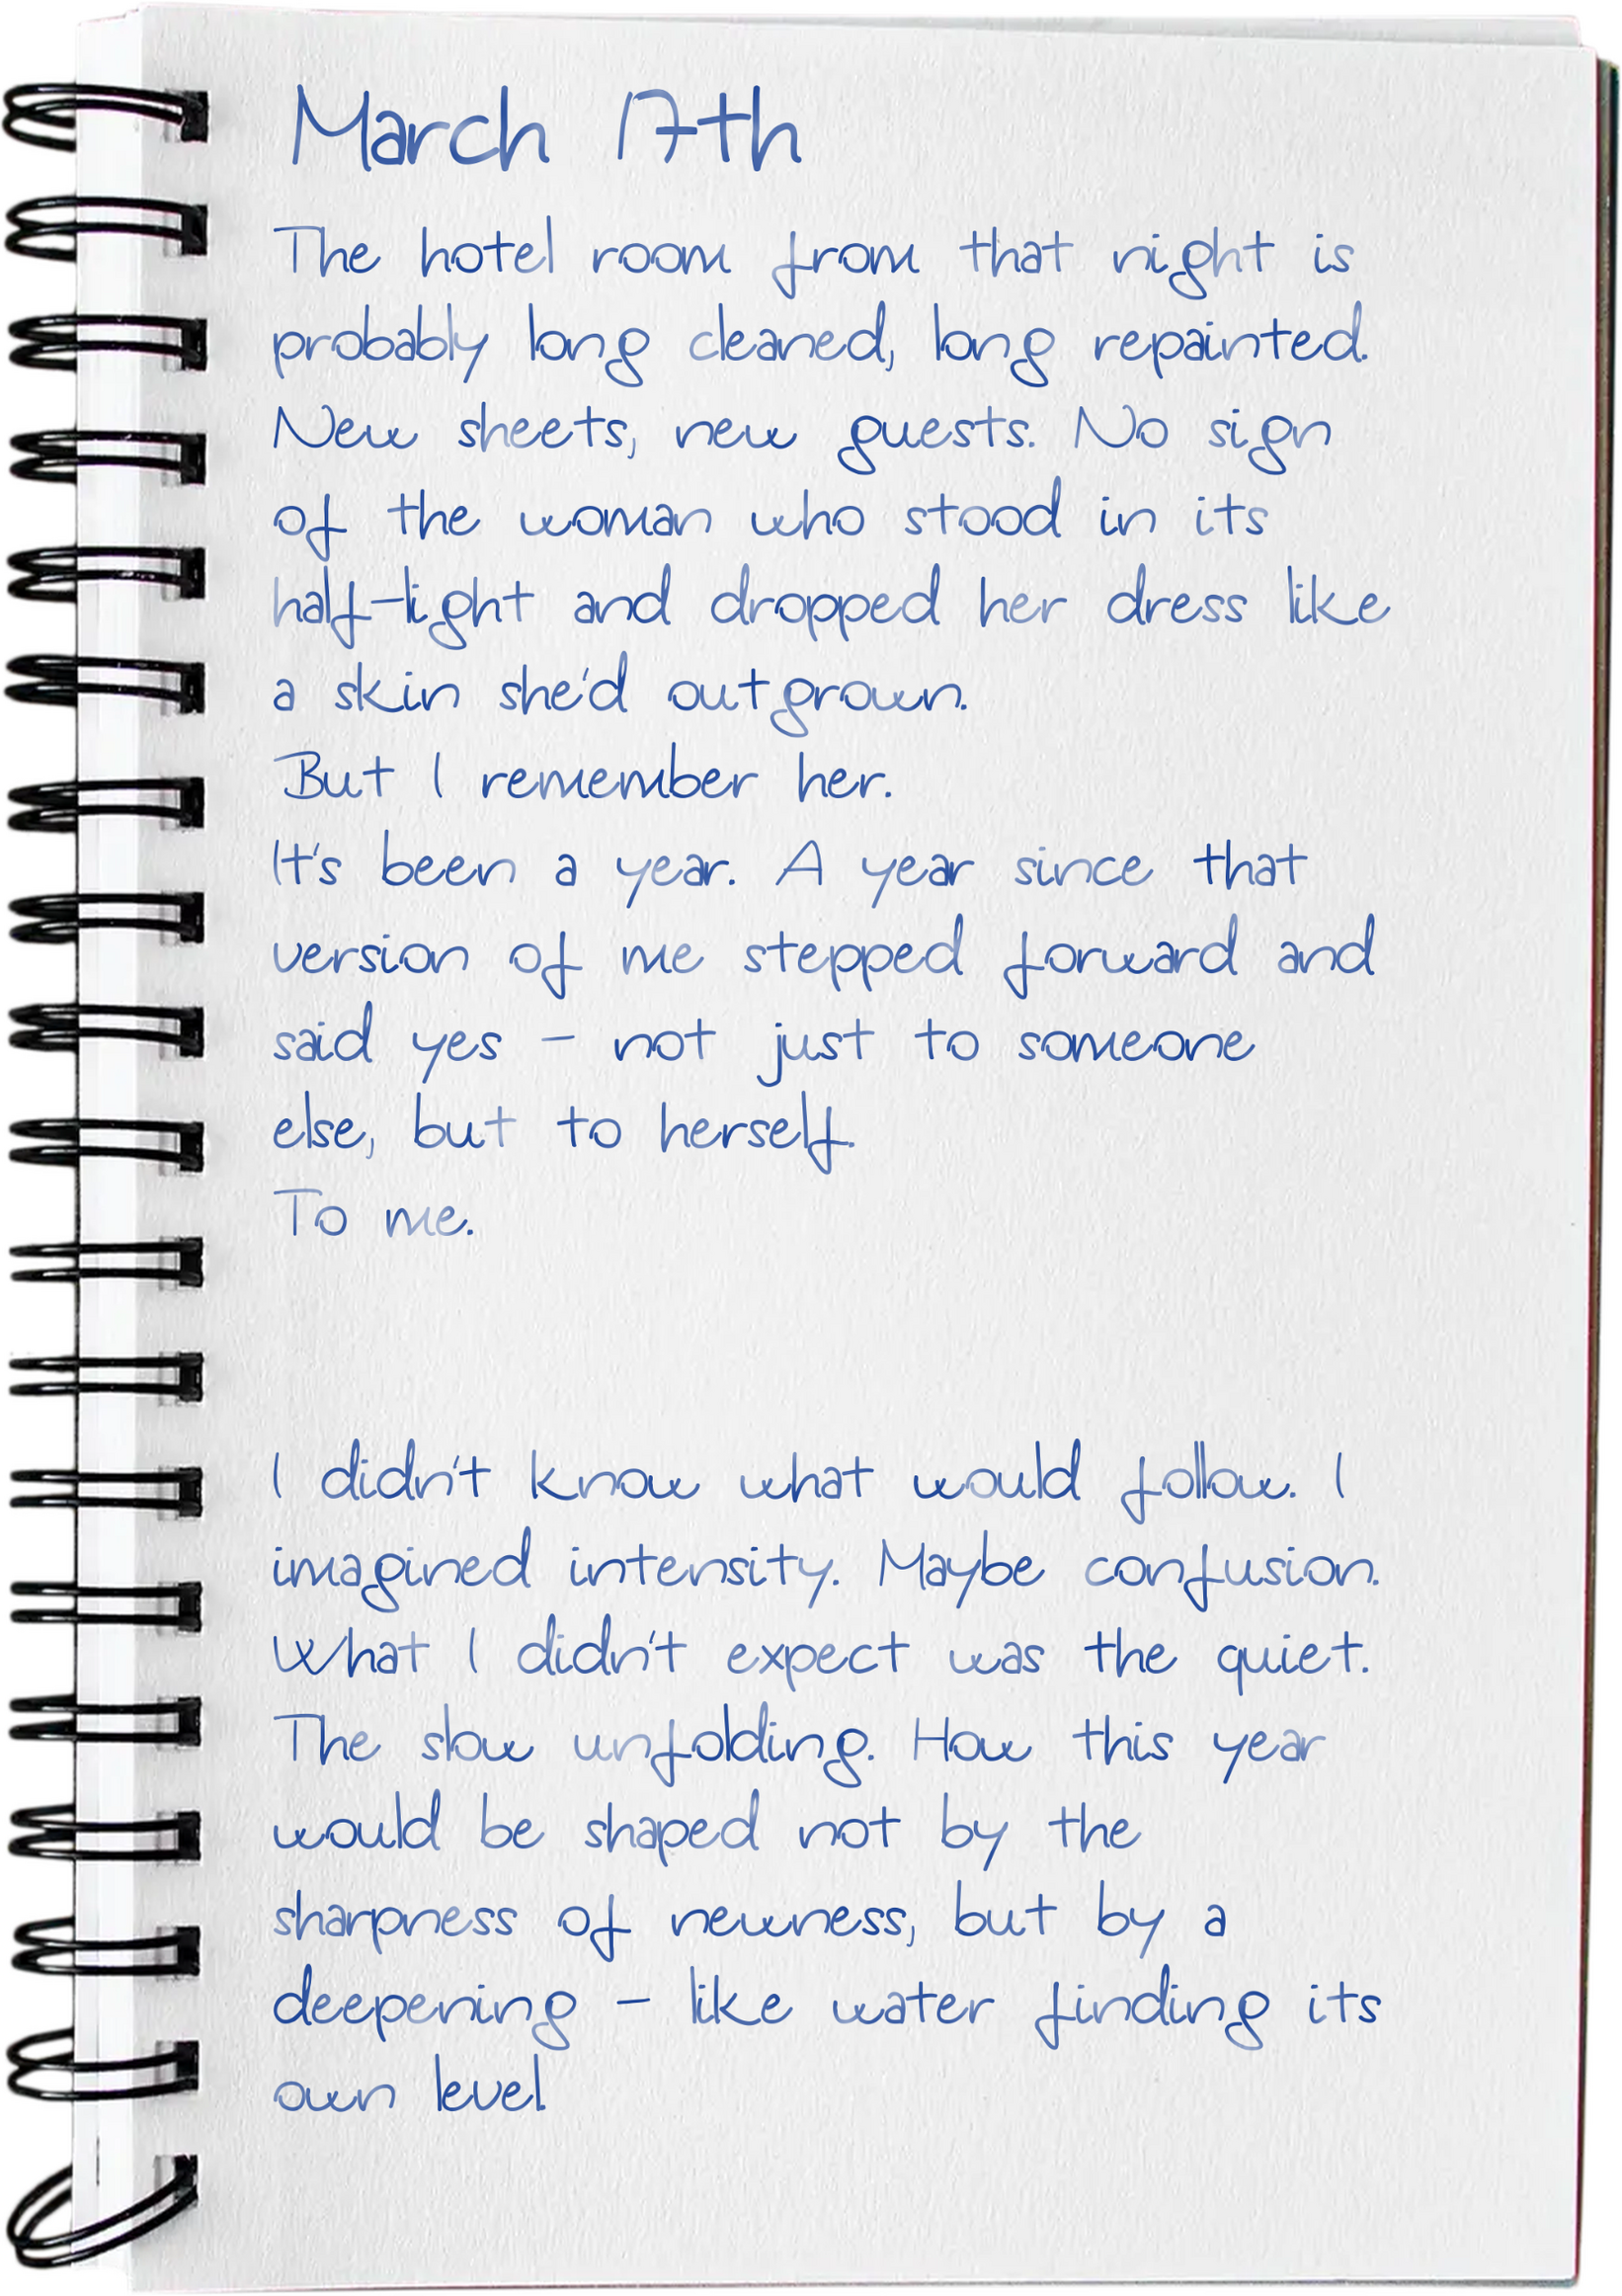 March 17th
The hotel room from that night is
probably long cleaned, long repainted.
New sheets, new guests. No sign
of the woman who stood in its
half-light and dropped her dress like
a skin she'd outgrown.
But I remember her.
It's been a year. A year since that
version of me stepped forward and
said yes - not just to someone
else, but to herself.
To me.
I didn't know what would follow. I
imagined intensity. Maybe confusion.
What I didn't expect was the quiet.
The slow unfolding. How this year
would be shaped not by the
sharpness of newness, but by a
deepening - like water finding its
own level.